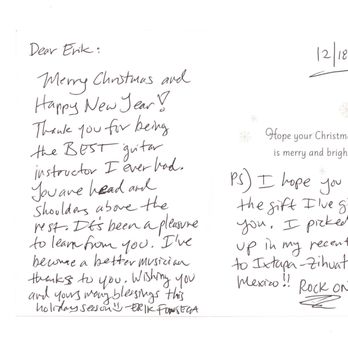 Dear Erik:
Merry Christmas and
Happy New Year!
Thank you for being
the BEST guitar
instructor I ever had.
You are head and
shoulders above the
rest. It's been a pleasure
to learn from you. I've
become a better musician
thanks to you. Wishing you
and yours many blessings this
holiday season!! - ERIK FONSECA
12/18
Hope your Christm
is merry and brigh
PS) I hope you
the gift I've g
you. I picked
up in my recent
to Ixtapa-Zihuat
Mexico!! ROCK ON